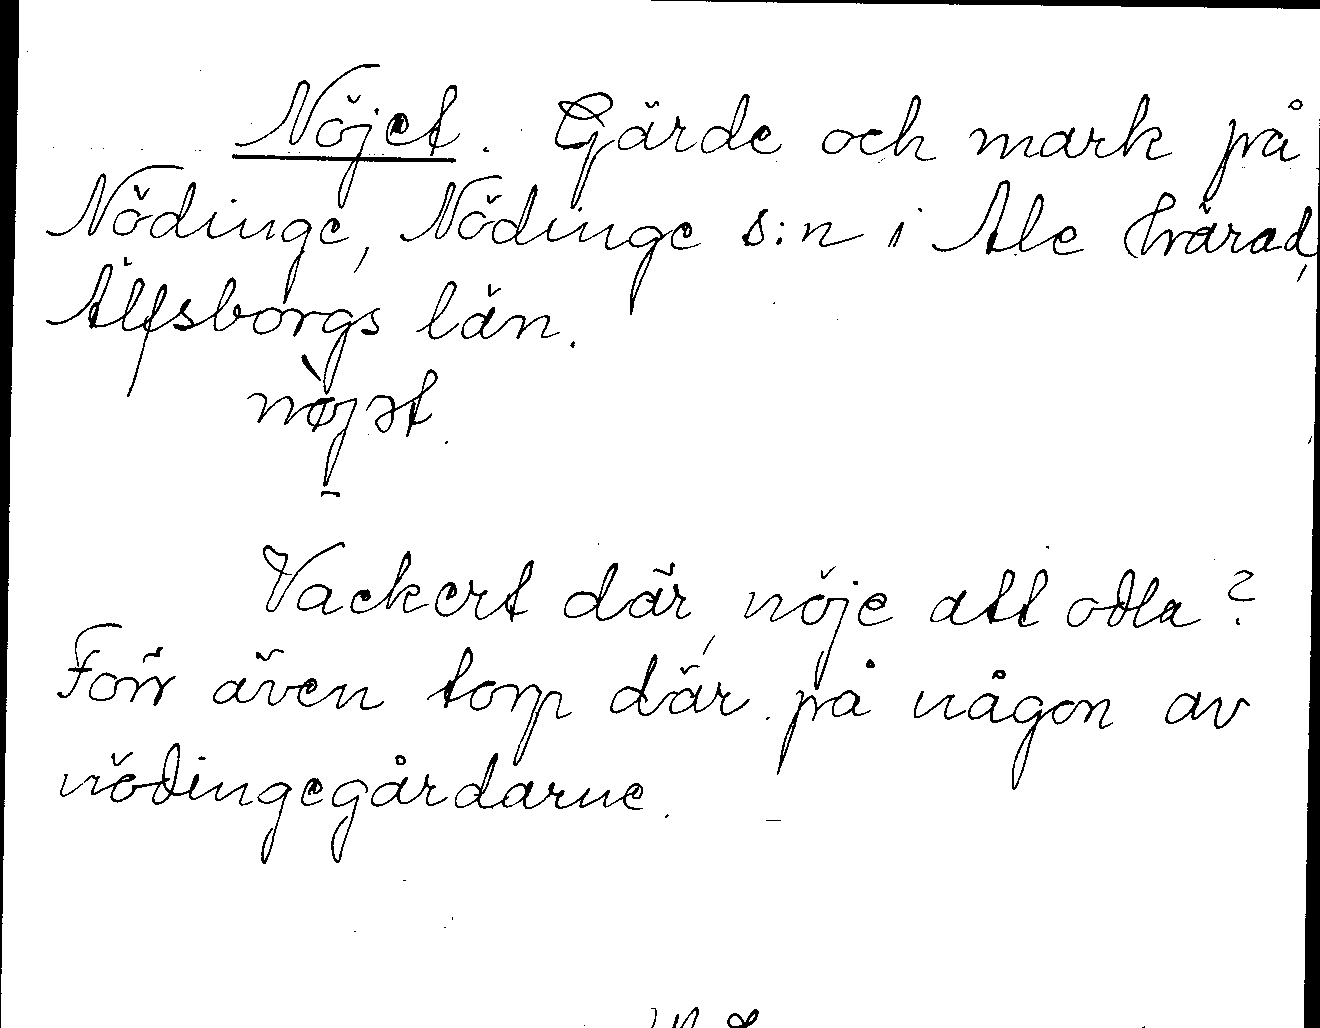 Nöjet. Gärde och mark på
Nödinge, Nödinge s:n i Ale härad,
Älfsborgs län.
nø̀jət
Vackert där, nöje att odla?
Förr även torp där på någon av
nödingegårdarne.